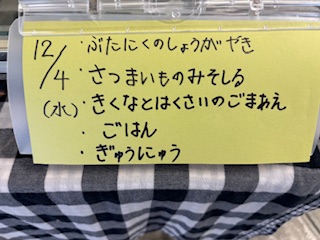 12/4(水)
・ぶたにくのしょうがやき
・さつまいものみそしる
・きくなとはくさいのごまあえ
・ごはん
・ぎゅうにゅう